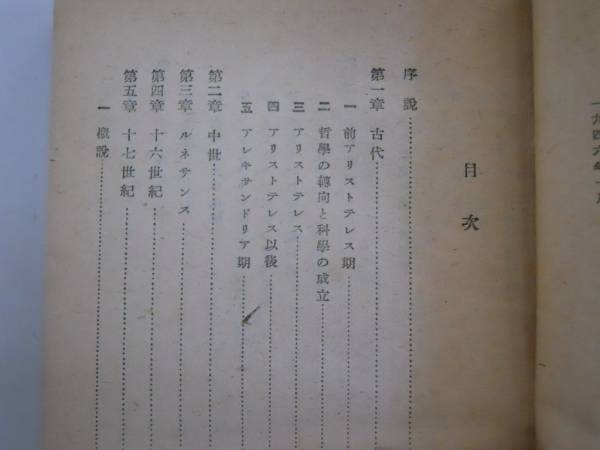 一九四六年一月
目次
序說
第一章 古代
一 前アリストテレス期
二 哲學の轉向と科學の成立
三 アリストテレス
四 アリストテレス以後
五 アレキサンドリア期
第二章 中世
第三章 ルネサンス
第四章 十六世紀
第五章 十七世紀
一 槪說